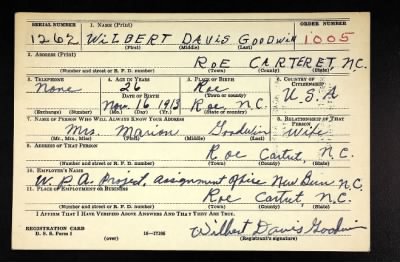 SERIAL NUMBER 1. NAME (Print) ORDER NUMBER
1262 WILBERT DAVIS GOODWIN 1005
(First) (Middle) (Last)
2. ADDRESS (Print)
ROE CARTERET, N.C.
(Number and street or R. F. D. number) (Town) (County) (State)
3. TELEPHONE 4. AGE IN YEARS 5. PLACE OF BIRTH 6. COUNTRY OF CITIZENSHIP
None 26 Roe
DATE OF BIRTH (Town or county)
Nov. 16 1913 Roe, N.C. U.S.A
(Exchange) (Number) (Mo.) (Day) (Yr.) (State or country)
7. NAME OF PERSON WHO WILL ALWAYS KNOW YOUR ADDRESS 8. RELATIONSHIP OF THAT PERSON
Mrs. Marion Goodwin Wife
(Mr., Mrs., Miss) (First) (Middle) (Last)
9. ADDRESS OF THAT PERSON
Roe Cartret, N.C.
(Number and street or R. F. D. number) (Town) (County) (State)
10. EMPLOYER'S NAME
W.P.A. Project, Assignment Office New Bern N.C.
11. PLACE OF EMPLOYMENT OR BUSINESS
Roe Cartret, N.C.
(Number and street or R. F. D. number) (Town) (County) (State)
I AFFIRM THAT I HAVE VERIFIED ABOVE ANSWERS AND THAT THEY ARE TRUE.
REGISTRATION CARD
D. S. S. Form 1 Wilbert Davis Goodwin
(over) (Registrant's signature)